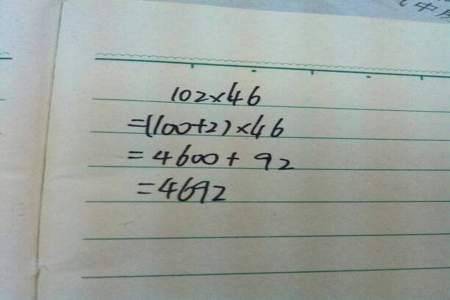 102×46
=(100+2)×46
=4600+92
=4692